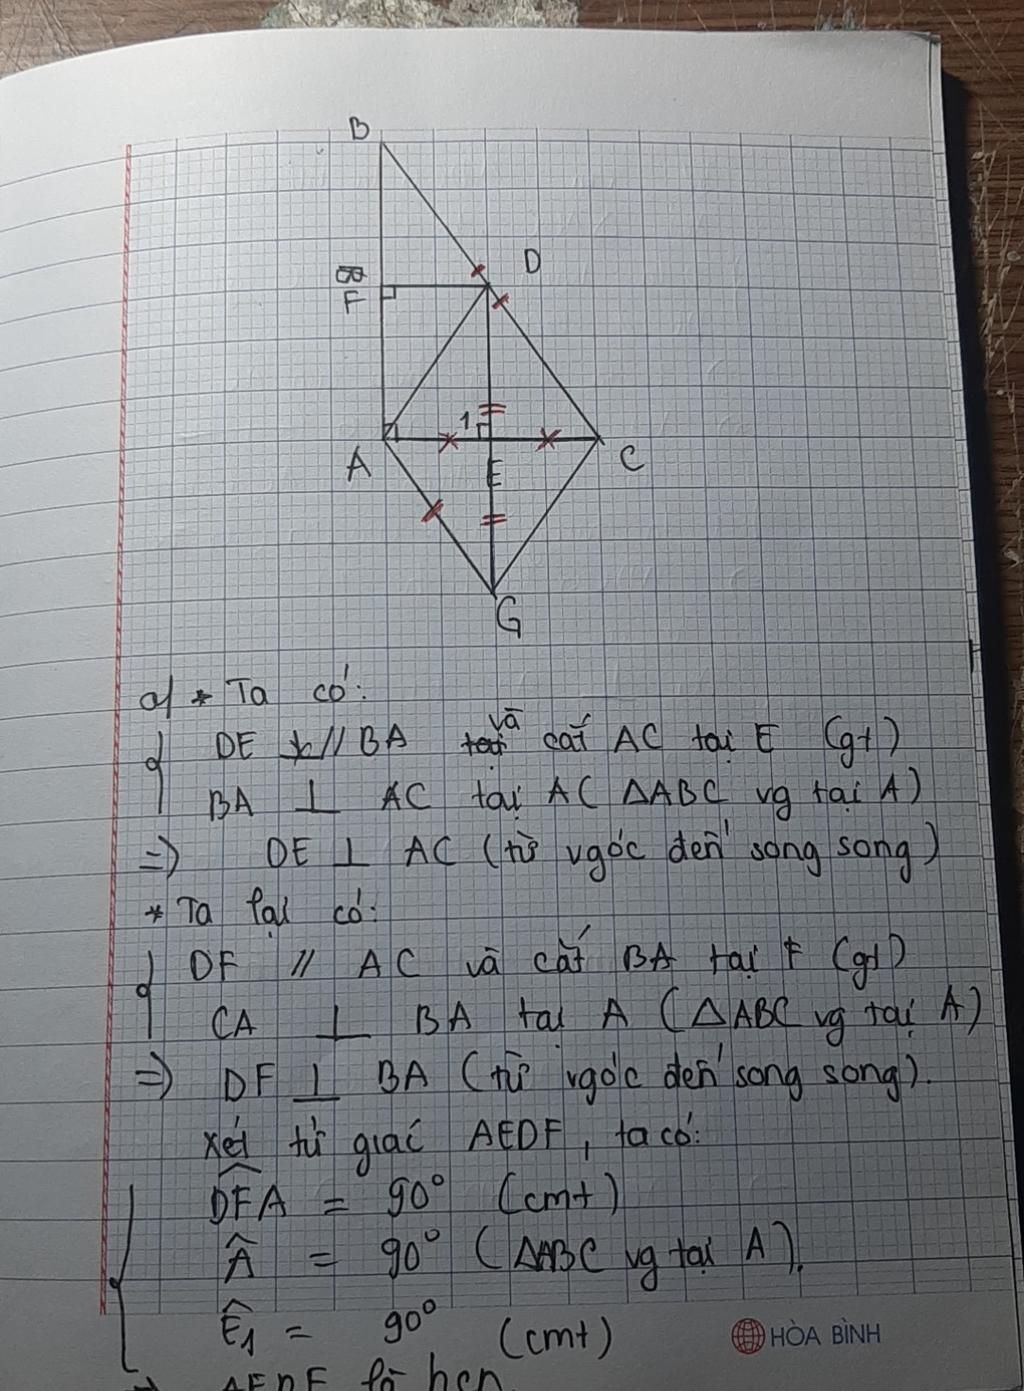 B
D
F
1
A
E
C
G
a) * Ta có:
DE // BA và cắt AC tại E (gt)
BA ⊥ AC tại A ( ΔABC vg tại A)
=> DE ⊥ AC (từ vgóc đến song song)
* Ta lại có:
DF // AC và cắt BA tại F (gt)
CA ⊥ BA tại A (ΔABC vg tại A)
=> DF ⊥ BA (từ vgóc đến song song).
xét tứ giác AEDF, ta có:
DFA = 90° (cmt)
Â = 90° (ΔABC vg tại A).
Ê₁ = 90° (cmt)
HÒA BÌNH
=> AEDF là hcn